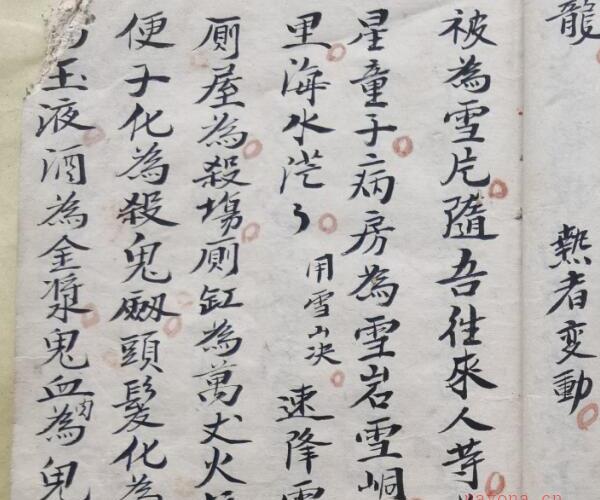 龍
熱者變動
被為雪片隨吾往來人等
星童子病房為雪岩雪峒
里海水茫〻 用雪山决 速降雪
厠屋為殺場厠缸為萬丈火
便子化為殺鬼劒頭髮化為
玉液酒為金漿鬼血肉為鬼